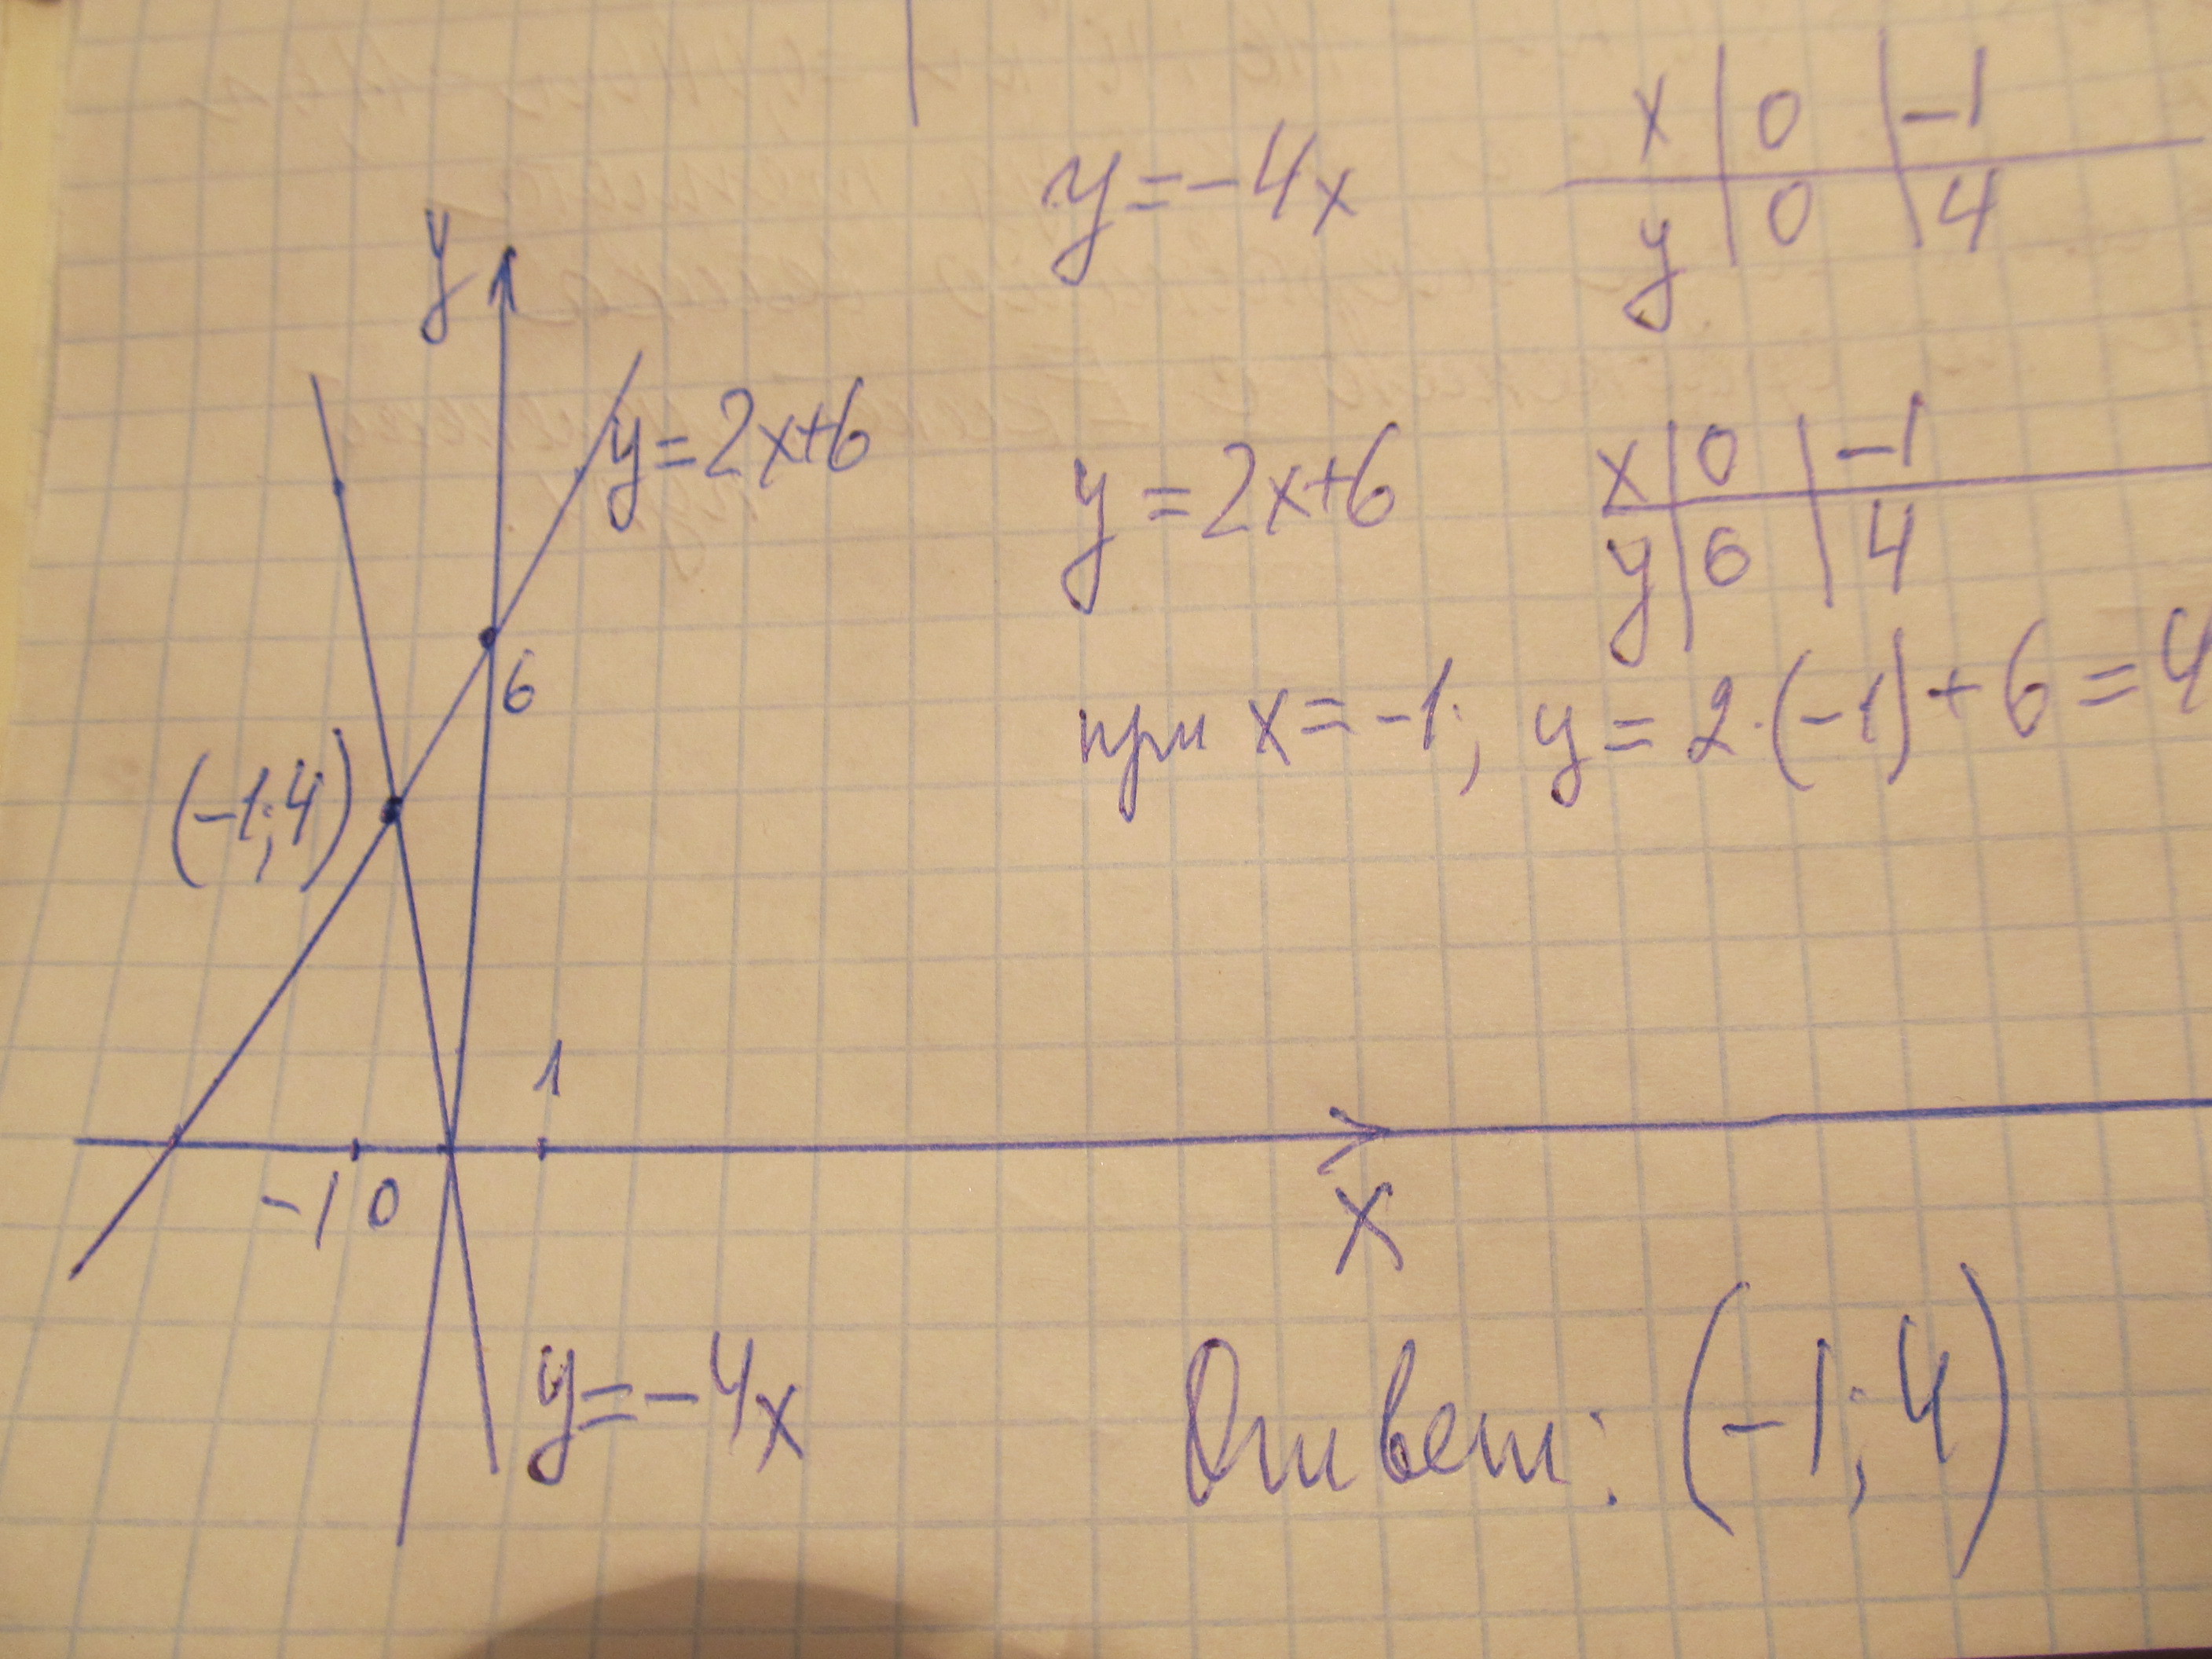 y = -4x
x | 0 | -1
y | 0 | 4
y
y = 2x+6
y = 2x+6
x | 0 | -1
y | 6 | 4
6
при x = -1; y = 2·(-1) + 6 = 4
(-1; 4)
1
-1 0
x
y = -4x
Ответ: (-1; 4)